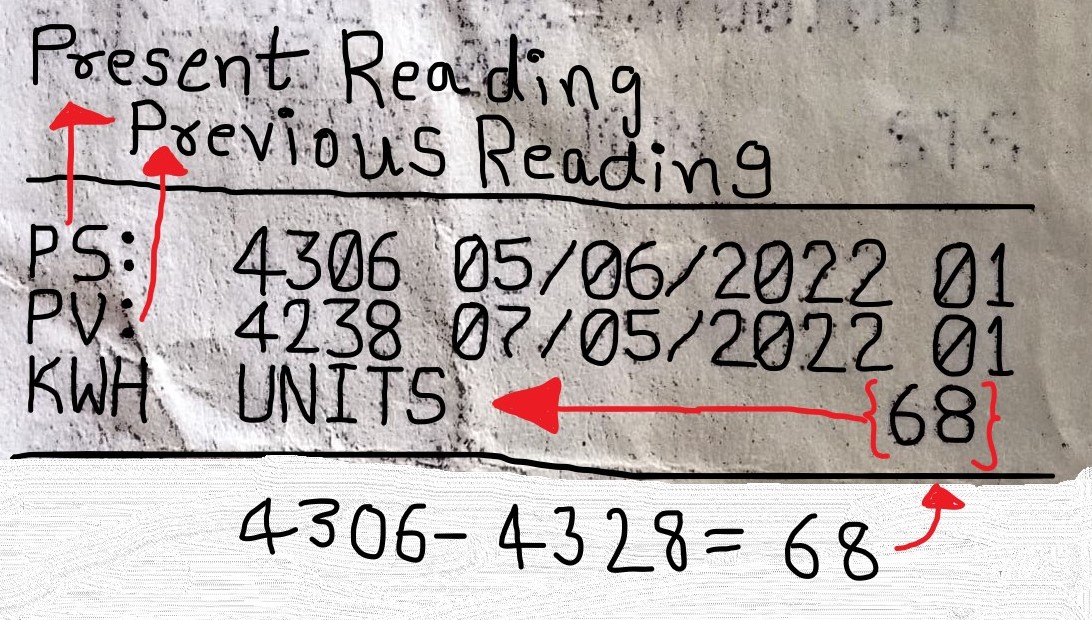 Present Reading
Previous Reading
PS: 4306 05/06/2022 01
PV: 4238 07/05/2022 01
KWH UNITS {68}
4306- 4328= 68